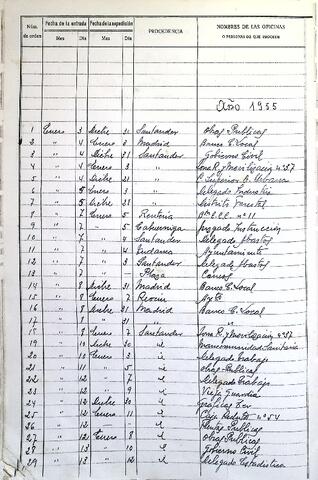 Núm. de orden | Fecha de la entrada Mes Día | Fecha de la expedición Mes Día | PROCEDENCIA | NOMBRES DE LAS OFICINAS O PERSONAS DE QUE PROCEDEN
Año 1955
1 Enero 3 Dicbre 31 Santander Obras Publicas
2 " 4 Enero 3 Madrid Banco C. Local
3 " 4 Dicbre 31 Santander Gobierno Civil
4 " 4 Enero 3 " Zona R. y Movilizacion nº 57
5 " 4 Dicbre 31 " Urbana
6 " 5 Enero 3 " Delegado Industria
7 " 5 Dicbre 31 " Distrito Forestal
8 " 7 Enero 5 Rentería nº 11
9 " 7 " 5 Cabuerniga Juzgado Instrucción
10 " 7 " 4 Santander Delegado Abastos
11 " 7 " 4 Ayuntamiento
12 " 7 " 3 Santander Delegado Abastos
13 " 7 " Plaza Correos
14 " 8 Dicbre 31 Madrid Banco C. Local
15 " 8 Enero 7 Reocin Ayto
16 " 8 Dicbre 31 Madrid Banco C. Local
17 " " 31 " "
18 " 8 Enero 7 Santander Zona R. y Movilizacion nº 57
19 " 10 Dicbre 30 id Mancomunidad Sanitaria
20 " 10 Enero 3 id Delegado Trabajo
21 " 11 " 5 id Obras Publicas
22 " 12 " 7 id Delegado Trabajo
23 " 12 " 9 id Vieja Guardia
24 " 12 Dicbre 30 id Graficas
25 " 12 Enero 11 id Caja Recluta nº 54
26 " 12 " - id Rentas Publicas
27 " 12 Enero 8 id Obras Publicas
28 " 13 " 10 id Gobierno Civil
29 " 13 " 12 id Delegado Estadistica